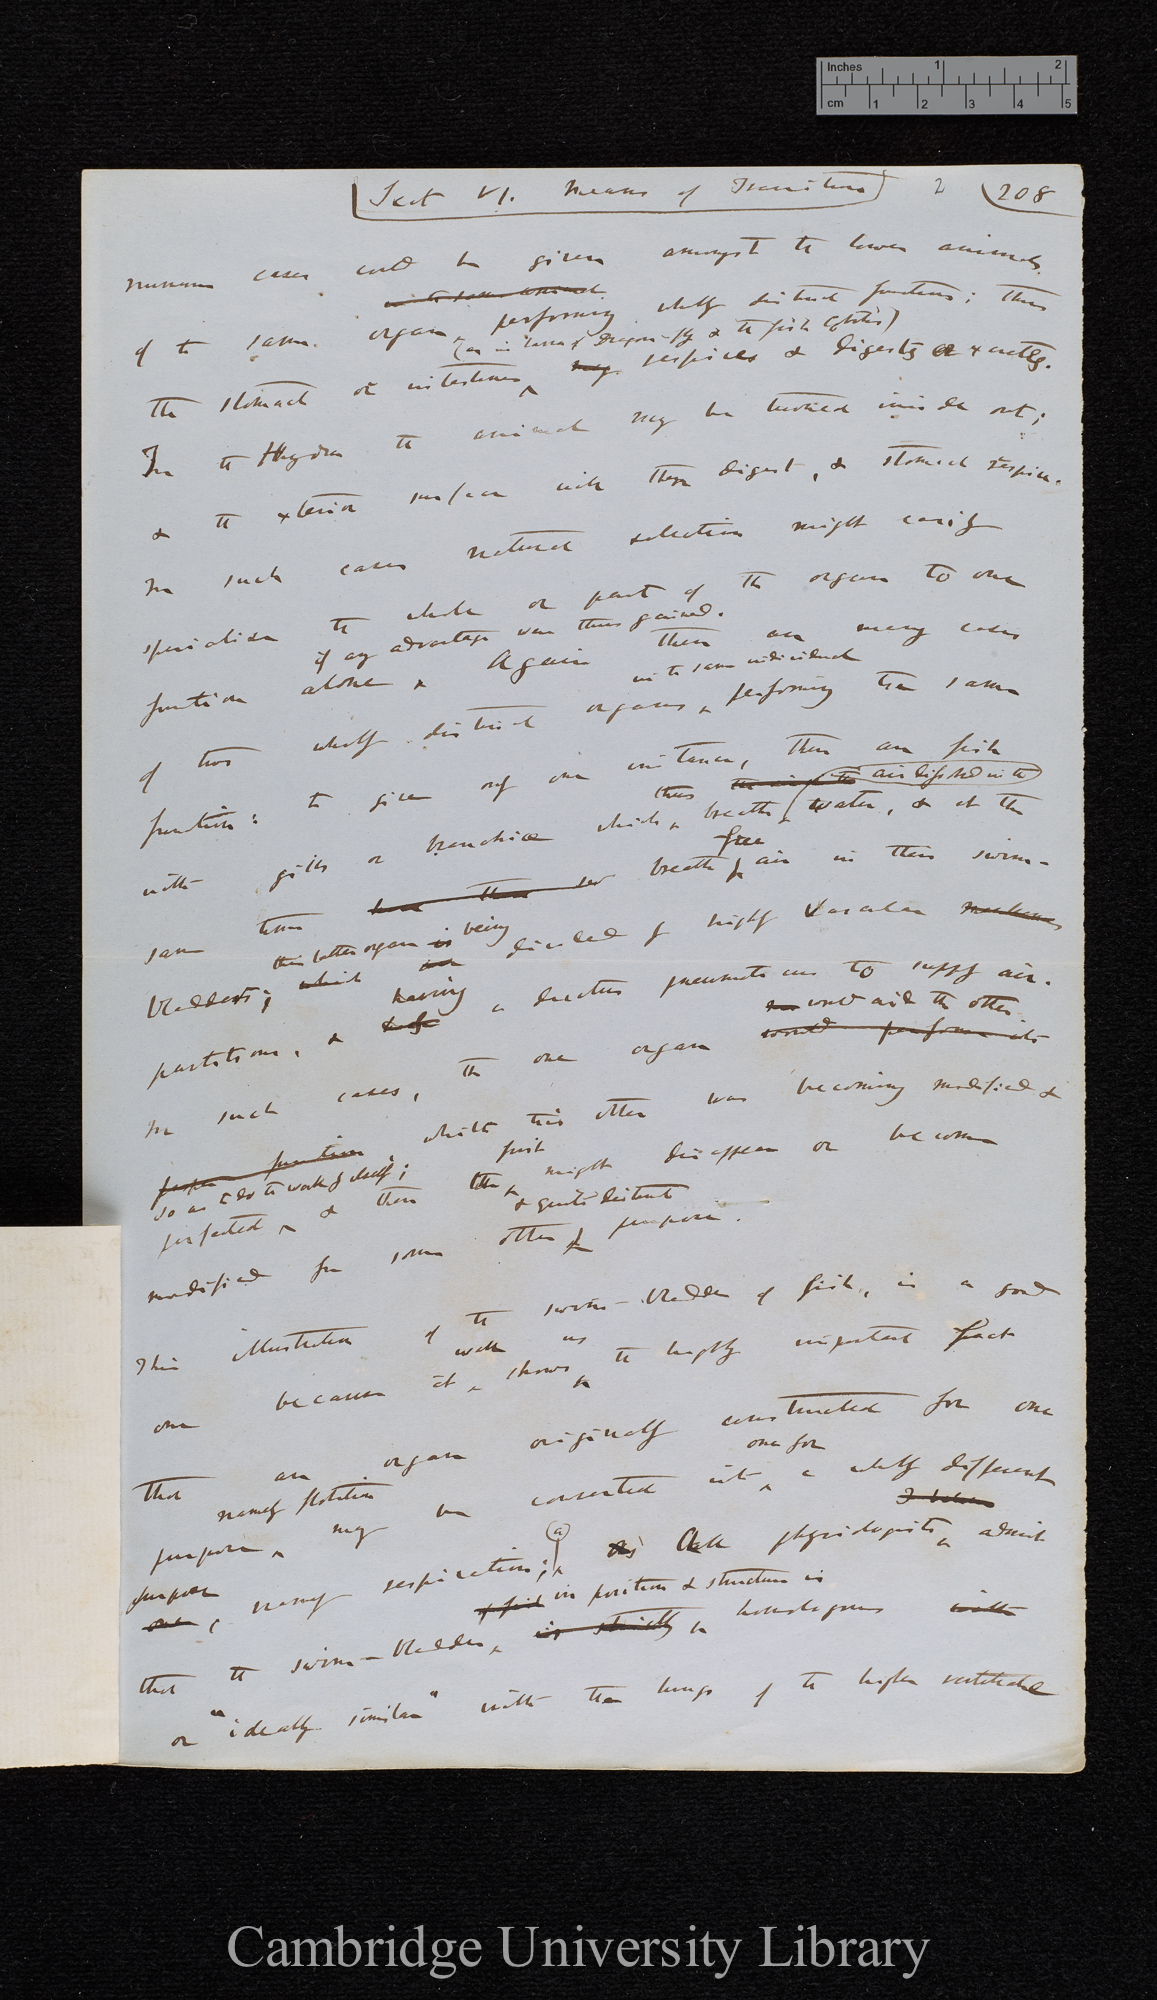 Inches 1 2
cm 1 2 3 4 5
Sect VI. Means of Transition 2 208
numerous cases could be given amongst the lower animals
in the same animal
of the same organ performing wholly distinct functions; thus
(as in larva of dragon-fly & the fish Cobitis)
the stomach or intestines, may respires & digests & excretes.
In the Hydra the animal may be turned inside out;
& the exterior surface will then digest, & stomach respire.
In such cases natural selection might easily
specialise the whole or part of the organ to one
if any advantage was thus gained.
function alone Again there are many cases
in the same individual
of two wholly distinct organs, performing the same
function: to give only one instance, there are fish
thus air dissolved in the
with gills or branchiæ which breathe water, & at the
free
same time breathe air in their swim-
this latter organ is being
bladders; which are divided by highly vascular
having
partitions, & a ductus pneumaticus to supply air.
would aid the other.
In such cases, the one organ would perform its
proper function, whilst this other was becoming modified &
so as to do the work by itself; first
perfected, & then the might disappear or become
& quite distinct
modified for some other purpose.
This illustration of the swim-bladder of fish, is a good
well us
one because it shows the highly important fact
that an organ originally constructed for one
namely flotation one for
purpose may be converted into a wholly different
(a) I believe
purpose
one, namely respiration; All physiologists admit
in position & structure is
that the swim-bladder, is strictly homologous with
or "ideally similar" with the lungs of the higher vertebrate
Cambridge University Library